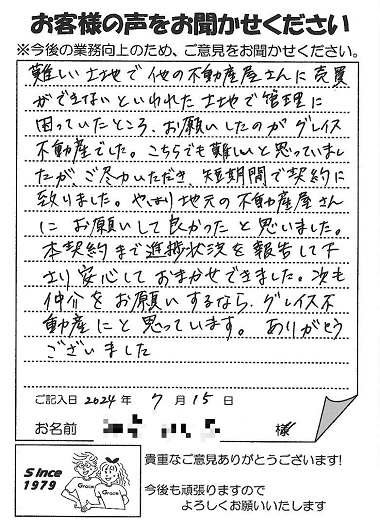 お客様の声をお聞かせください
※今後の業務向上のため、ご意見をお聞かせください。
難しい土地で他の不動産屋さんに売買
ができないといわれた土地で管理に
困っていたところ、お願いしたのがグレイス
不動産でした。こちらでも難しいと思っていまし
たが、ご尽力いただき、短期間で契約に
致りました。やはり地元の不動産屋さん
にお願いして良かったと思いました。
本契約まで進捗状況を報告して下
さり安心しておまかせできました。次も
仲介をお願いするなら、グレイス不
動産にと思っています。ありがとう
ございました
ご記入日 2024 年 7 月 15 日
お名前 様
Since
1979
Grace
Grace
貴重なご意見ありがとうございます!
今後も頑張りますので
よろしくお願いいたします